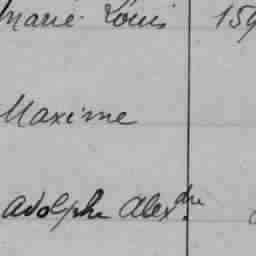 Marie-Louis 159
Maxime
Adolphe Alexdre